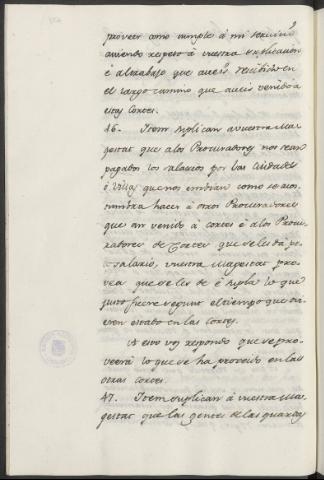 proveer como cumple à mi servicio
aviendo respeto à vuestra suplicacion
è al trabajo que aveis recibido en
el largo camino que aveis venido à
estas Cortes.
46. Item suplican a vuestra Ma-
gestat que à los Procuradores nos sean
pagados los salarios por las Ciudades
ò Villas que nos embian como se acos-
tumbra hacer à otros Procuradores
que an venido à cortes è à los Procu-
radores de que se les da
salario, vuestra Magestat pro-
vea que se les dè è supla lo que
justo fuere segunt el tiempo que ovie-
ren estado en las cortes.
A esto vos respondo que se pro-
veerà lo que se ha proveido en las
otras cortes.
47. Item suplican à vuestra Ma-
gestat que las gentes de las guardas